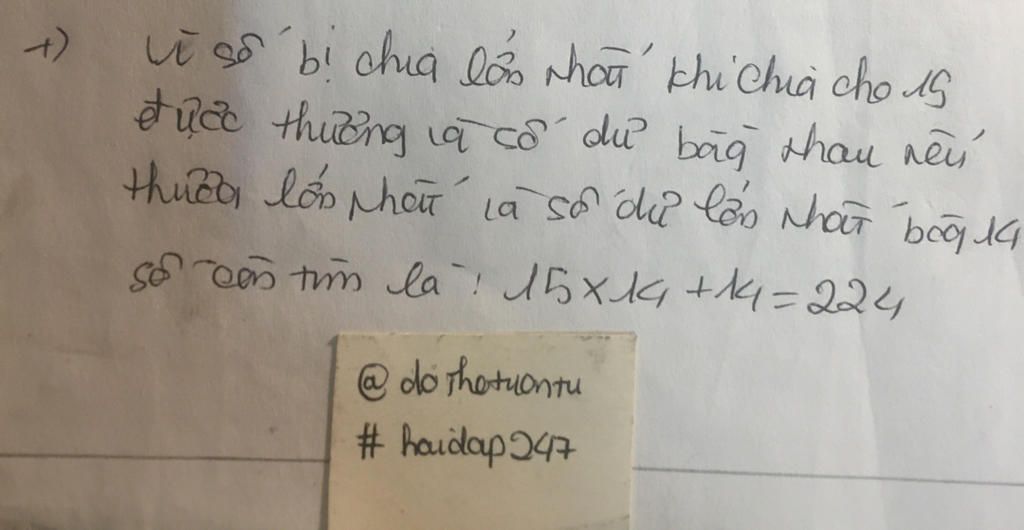 +) Vì số bị chia lớn nhất khi chia cho 15
được thương và số dư bằg nhau nếu
thươg lớn nhất và số dư lớn nhất bằg 14
số cần tìm là : 15 x 14 + 14 = 224
@ do thotuontu
# haidap247